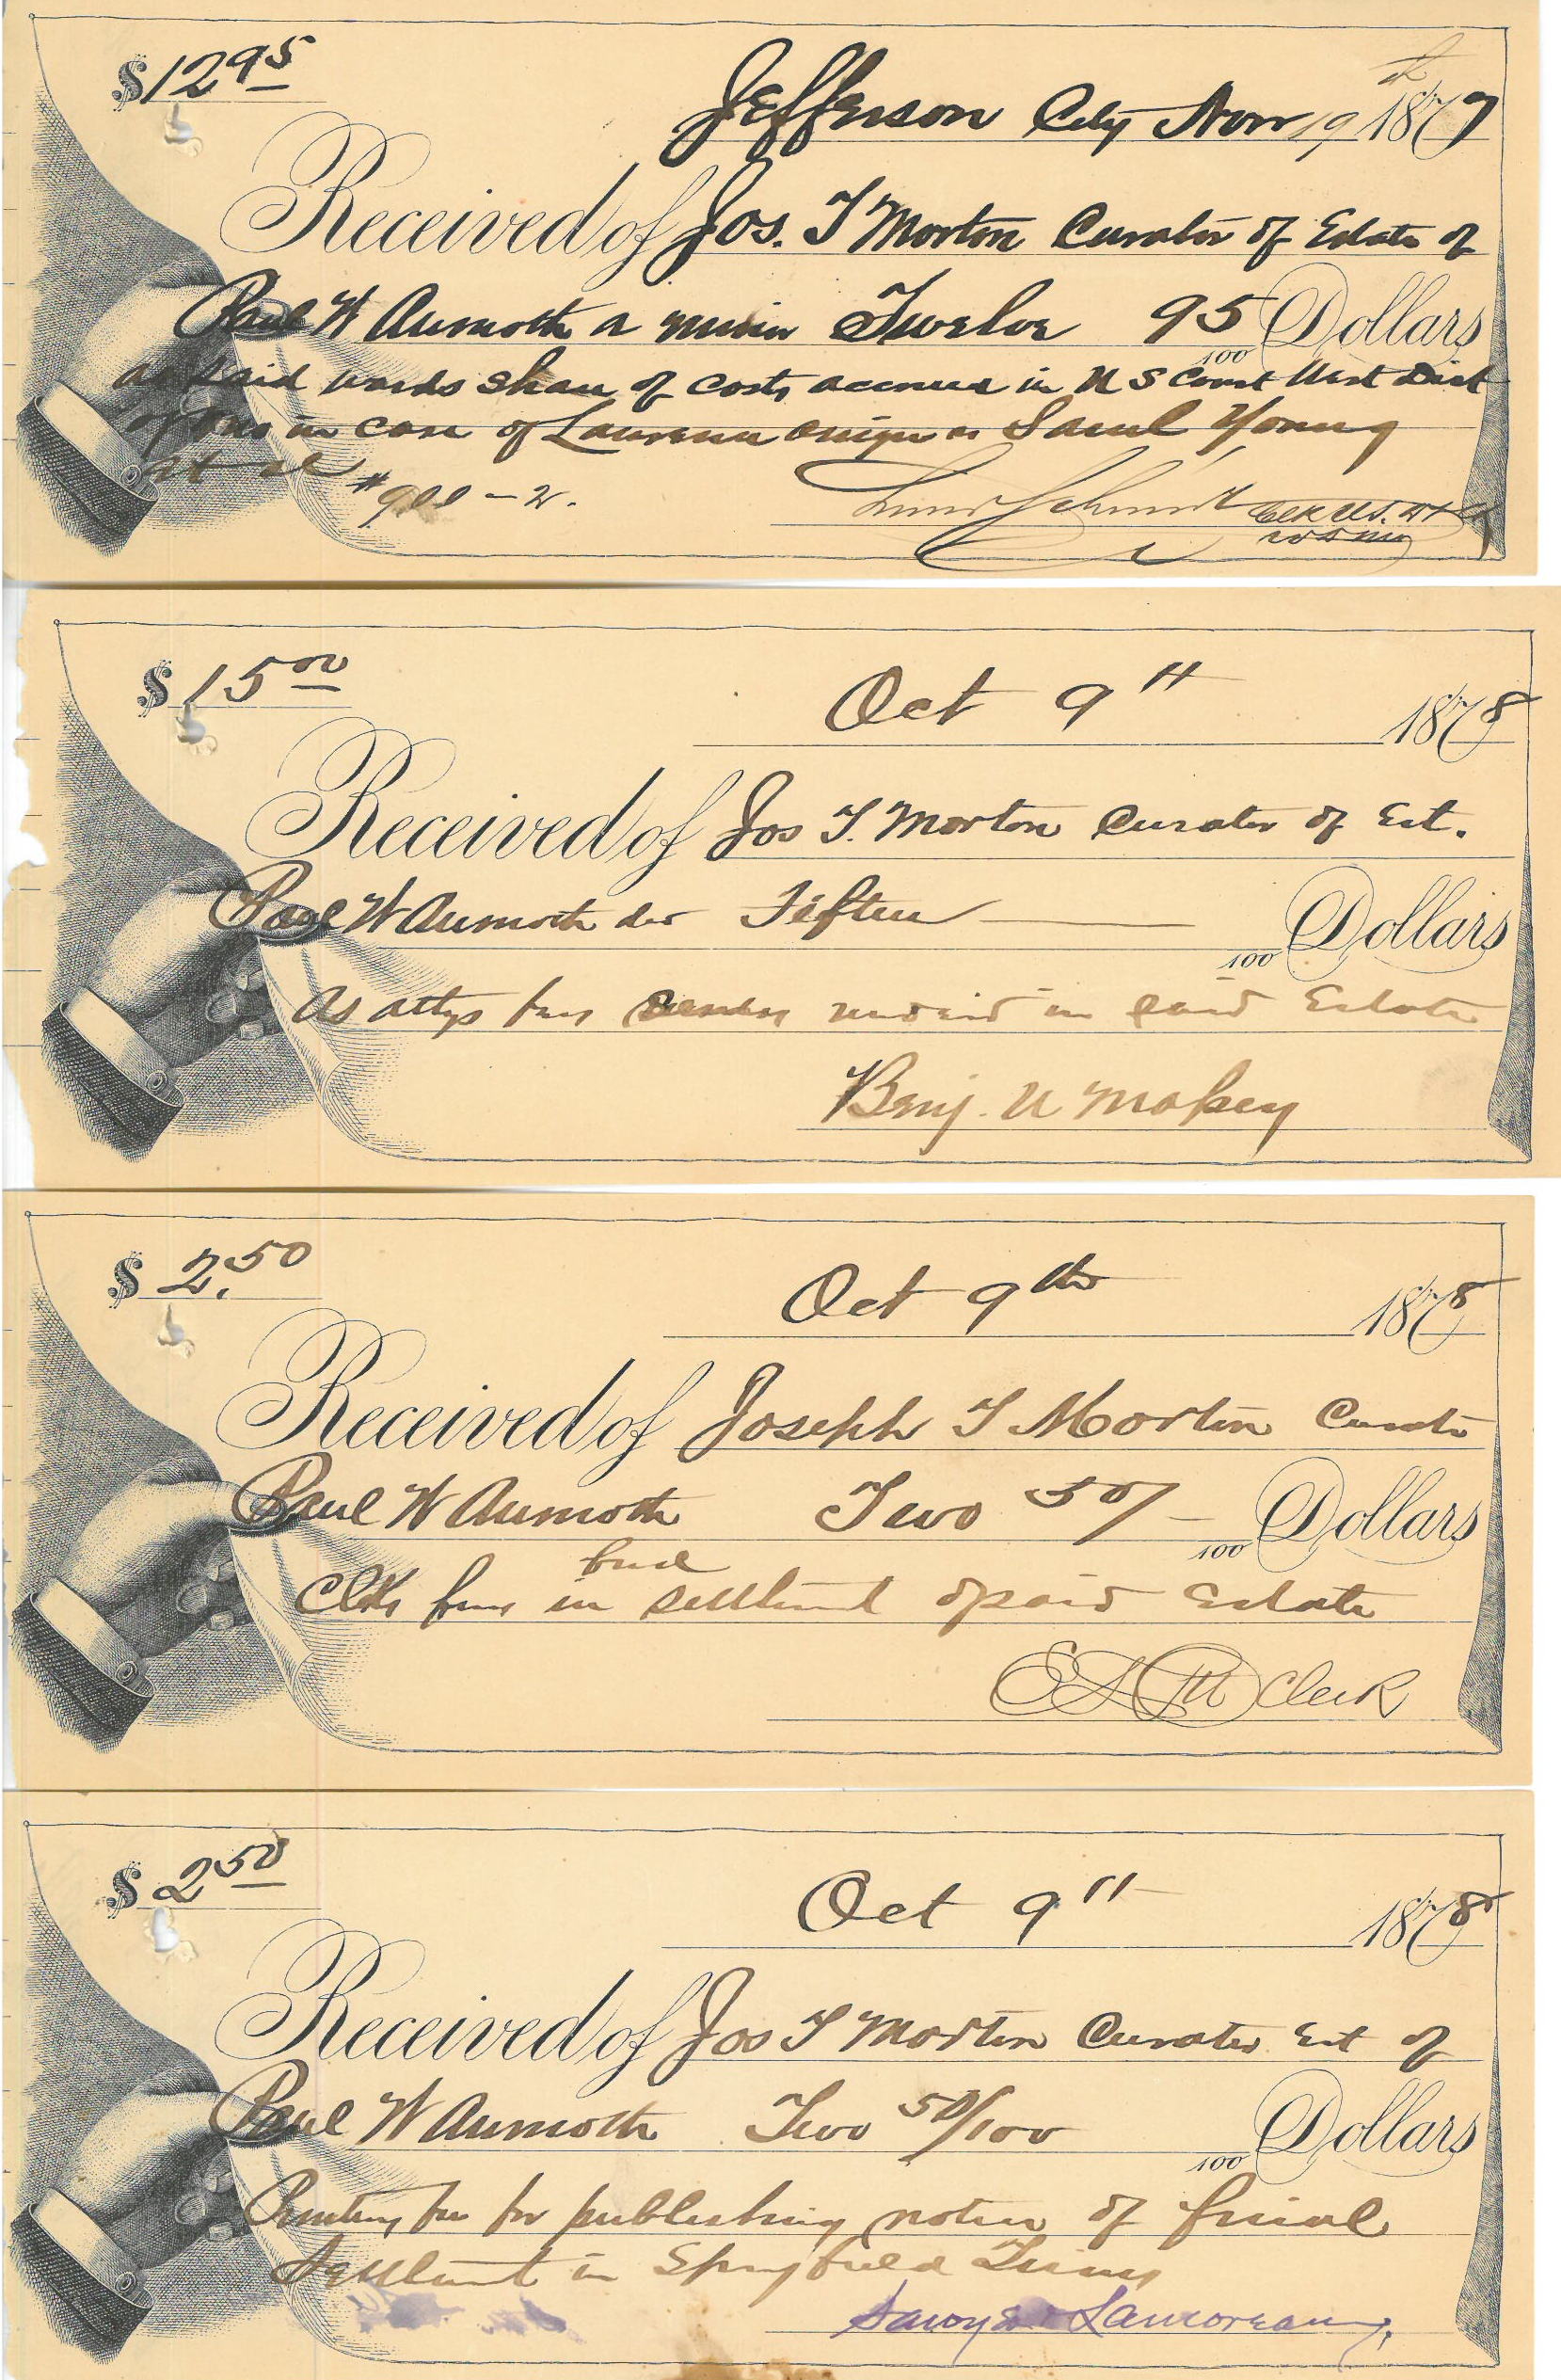 $12 95
Jefferson City Nov 19th 1877
Received of Jos. T Morton Curator of Estate of
Paul W Aumoth a minor Twelve 95/100 Dollars
as said wards share of costs accrued in U S Court West Dist
of Mo in case of vs Saml Young
et al #
Schmidt Clk U.S.
W D Mo
$ 15 00
Oct 9th 1878
Received of Jos T. Morton Curator of Est.
Paul W Aumoth Fifteen /100 Dollars
As attys fees in said Estate
Benj. U Massey
$ 2.50
Oct 9th 1878
Received of Joseph T Morton Curator
Paul W Aumoth Two 50/ 100 Dollars
final
Clks fees in settlement of said Estate
Clerk
$ 2 50
Oct 9th 1878
Received of Jos T Morton Curator Est of
Paul W Aumoth Two 50/100 100 Dollars
Printing fee for publishing notice of final
Settlement in Springfield Times
Sawyer